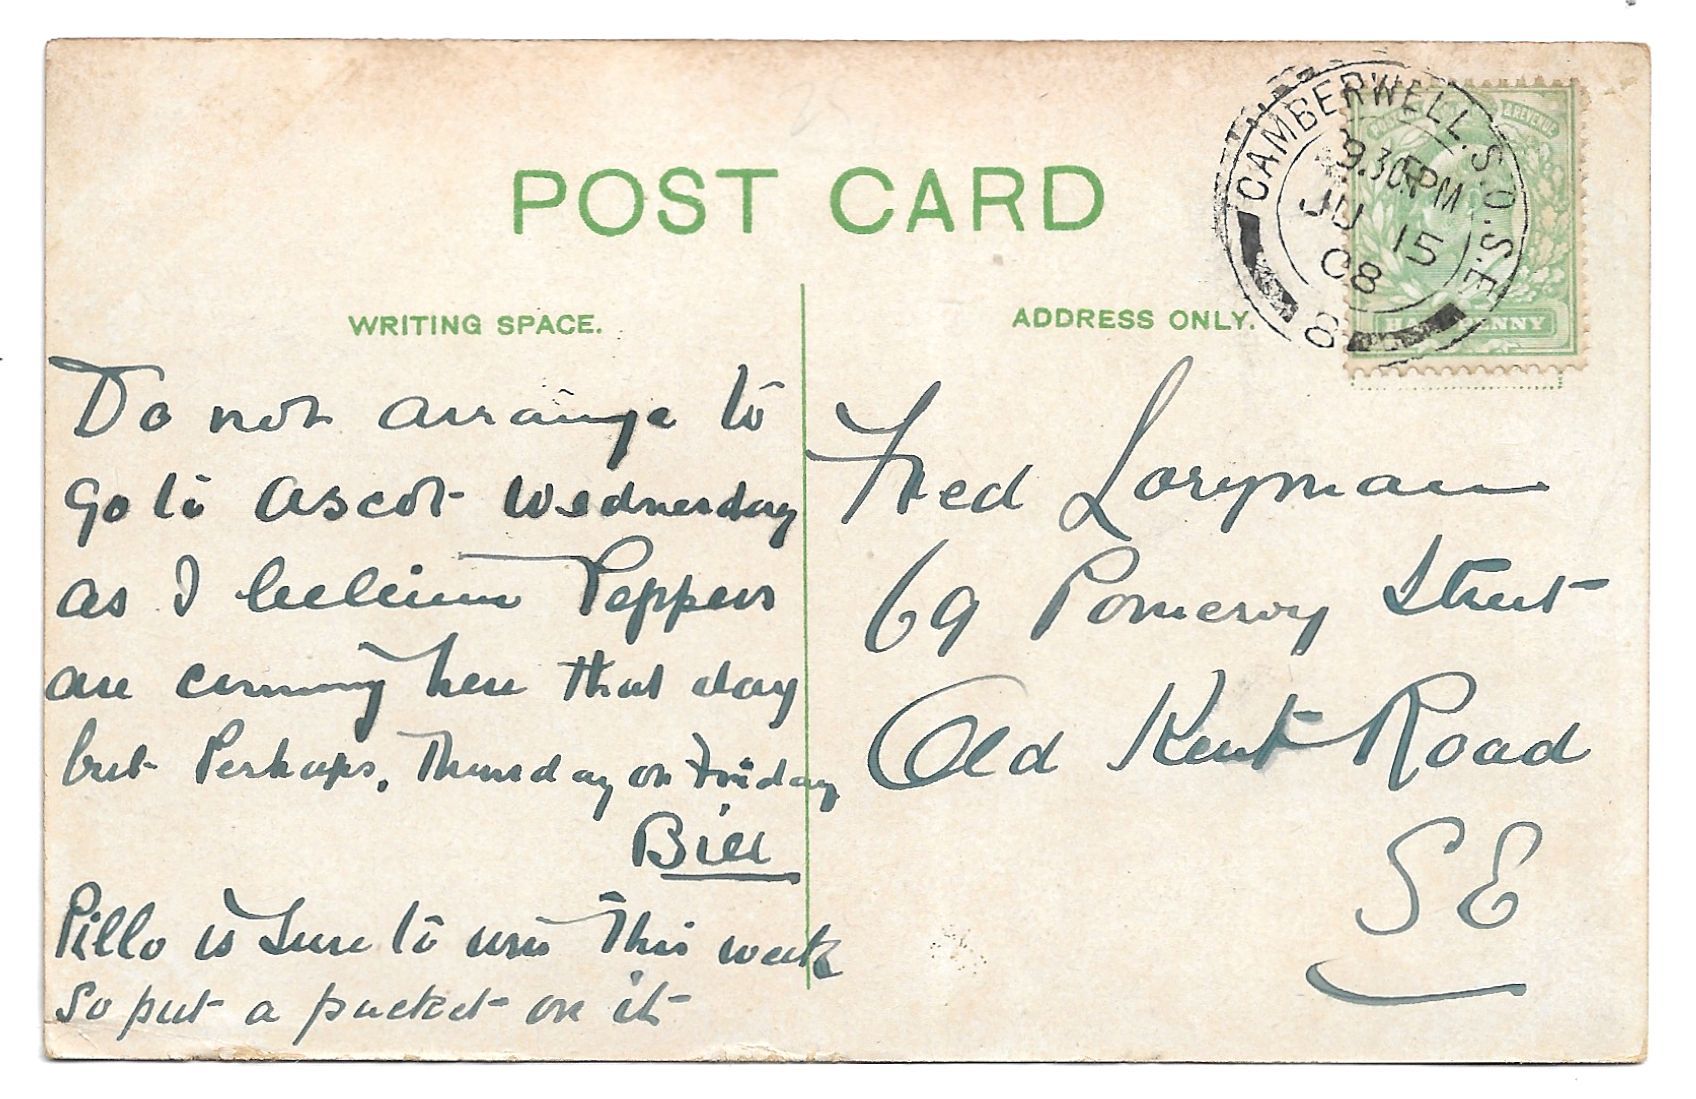 POST CARD
WRITING SPACE.
ADDRESS ONLY.
CAMBERWELL.S.O.S.E
9.30PM
JU 15
08
8
POSTAGE & REVENUE
HALFPENNY
Do not arrange to
go to Ascot Wednesday
as I believe Peppers
are coming here that day
but Perhaps. Thursday or Friday
Bill
Pillo is sure to win this week
So put a packet on it
Fred Loryman
69 Pomeroy Street
Old Kent Road
SE